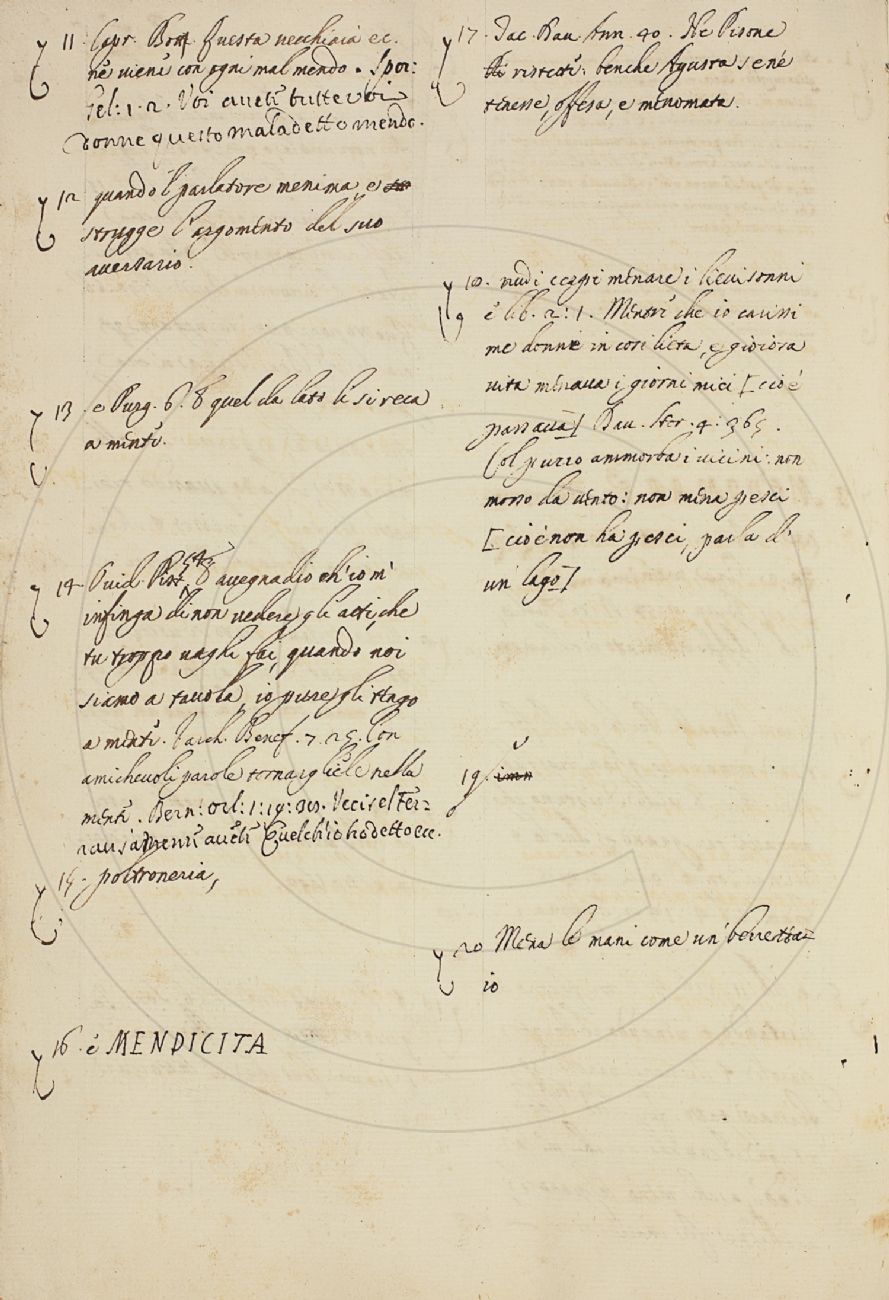 11. Capr. Bott. Questa vecchiaia ec.
nē vienē con ogni mal mendo. Spor:
Gel: 1. 2. Voi avetē tutte voi
donne questo maladetto mendo.
12 quando 'l parlatore menima, e
strugge l'argomento del suo
aversario.
13 e Purg. 6. E quel da lato li si reca
a mentē.
14. Guid. Pist. E avegnadio ch'io m'
infinga di non vedere gli atti, che
tu troppo vaghi fai, quando noi
siamo a tavola, io pure gli tēngo
a mentē. Varch. Benef. 7. 25. Con
amichevoli parole tornargliēle nella
mentē. Bern: Orl: 1: 19: Uccisel Fer=
avetē Quelch'io ho detto ec.
15. poltroneria,
16. ē MENDICITA
17. Tac. Dav. Ann. 40. Nē Pisone
fu ristretti: benche Agusta se nē
tēnesse, offesa, e menomata.
18. nudi e egri mēnare i lievi sonni
ē lib. 2: 1. Mēntrē che io cavissi
me donne in cosi lieta, e gioiosa
vita mēnava i giorni miei [cioē
passava] Dav. Ster. 4: 365.
Col puzzo ammorba i vicini: non
mosso da vento: non mēna pesci
[cioē non ha pesci, parla d'
un lago]
19.
20 Mēna le mani come un berretta=
io